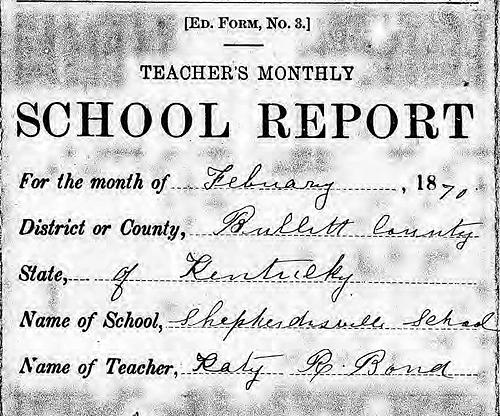 [ED. FORM, NO. 3.]
TEACHER'S MONTHLY
SCHOOL REPORT
For the month of February, 1870
District or County, Bullitt County
State, of Kentucky
Name of School, Shepherdsville School
Name of Teacher, Katy R. Bond